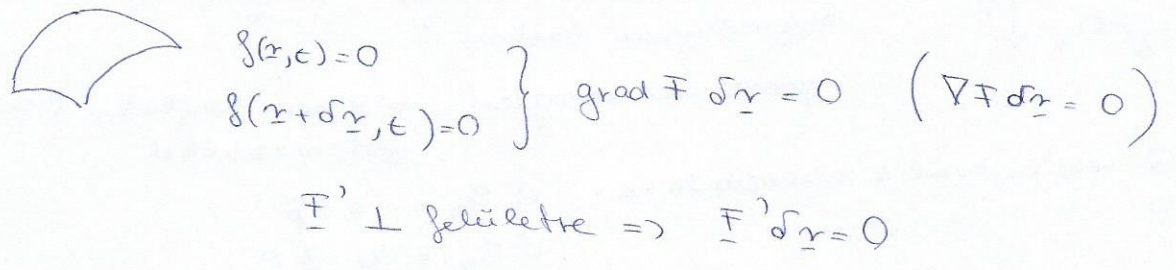 f(r,t)=0
f(r+δr,t)=0 } grad F δr = 0 (∇F δr = 0)
F' ⊥ felületre => F'δr = 0